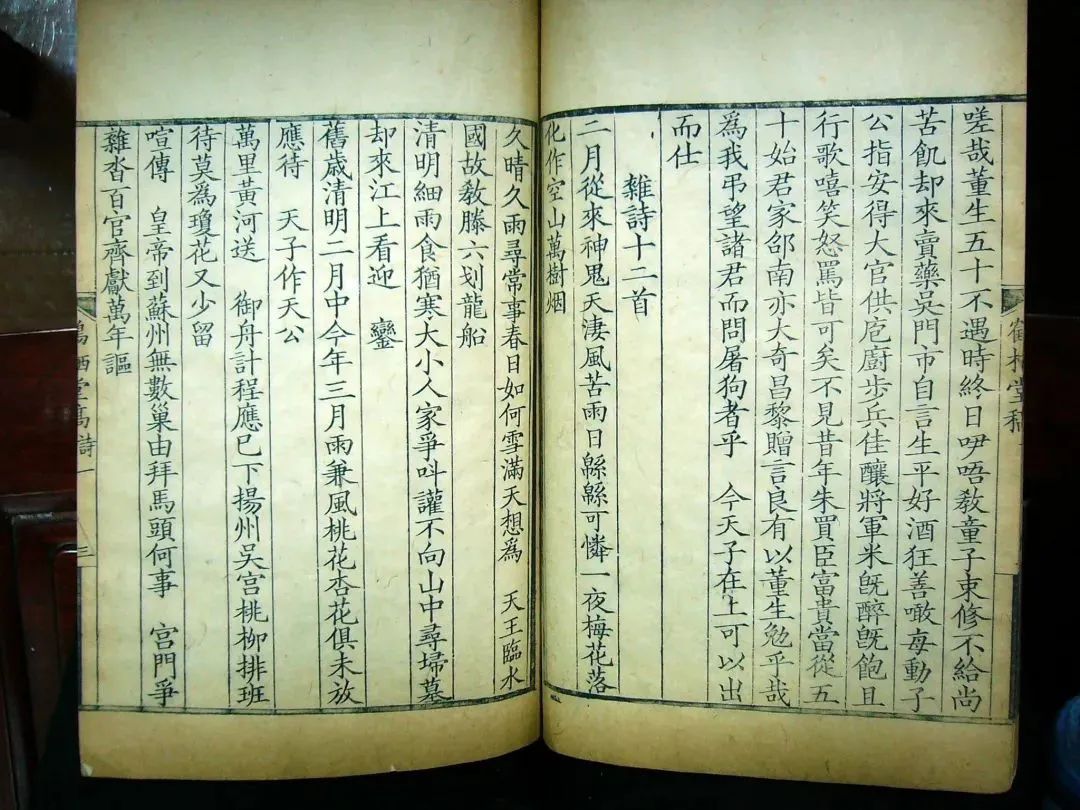 嗟哉董生五十不遇時終日咿唔敎童子束修不給尚
苦飢却來賣藥吳門市自言生平好酒狂善噉每動子
公指安得大官供庖廚步兵佳釀將軍米旣醉旣飽且
行歌嘻笑怒罵皆可矣不見昔年朱買臣富貴當從五
十始君家邰南亦大奇昌黎贈言良有以董生勉乎哉
為我弔望諸君而問屠狗者乎 今天子在上可以出
而仕
雜詩十二首
二月從來神鬼天淒風苦雨日緜緜可憐一夜梅花落
化作空山萬樹烟
久晴久雨尋常事春日如何雪滿天想爲 天王臨水
國故敎滕六划龍船
清明細雨食猶寒大小人家爭呌讙不向山中尋埽墓
却來江上看迎 鑾
舊歲清明二月中今年三月雨兼風桃花杏花俱未放
應待 天子作天公
萬里黃河送 御舟計程應已下揚州吳宮桃柳排班
待莫爲瓊花又少留
喧傳 皇帝到蘇州無數巢由拜馬頭何事 宮門爭
雜沓百官齊獻萬年謳
堂稿
栖堂詩一
三